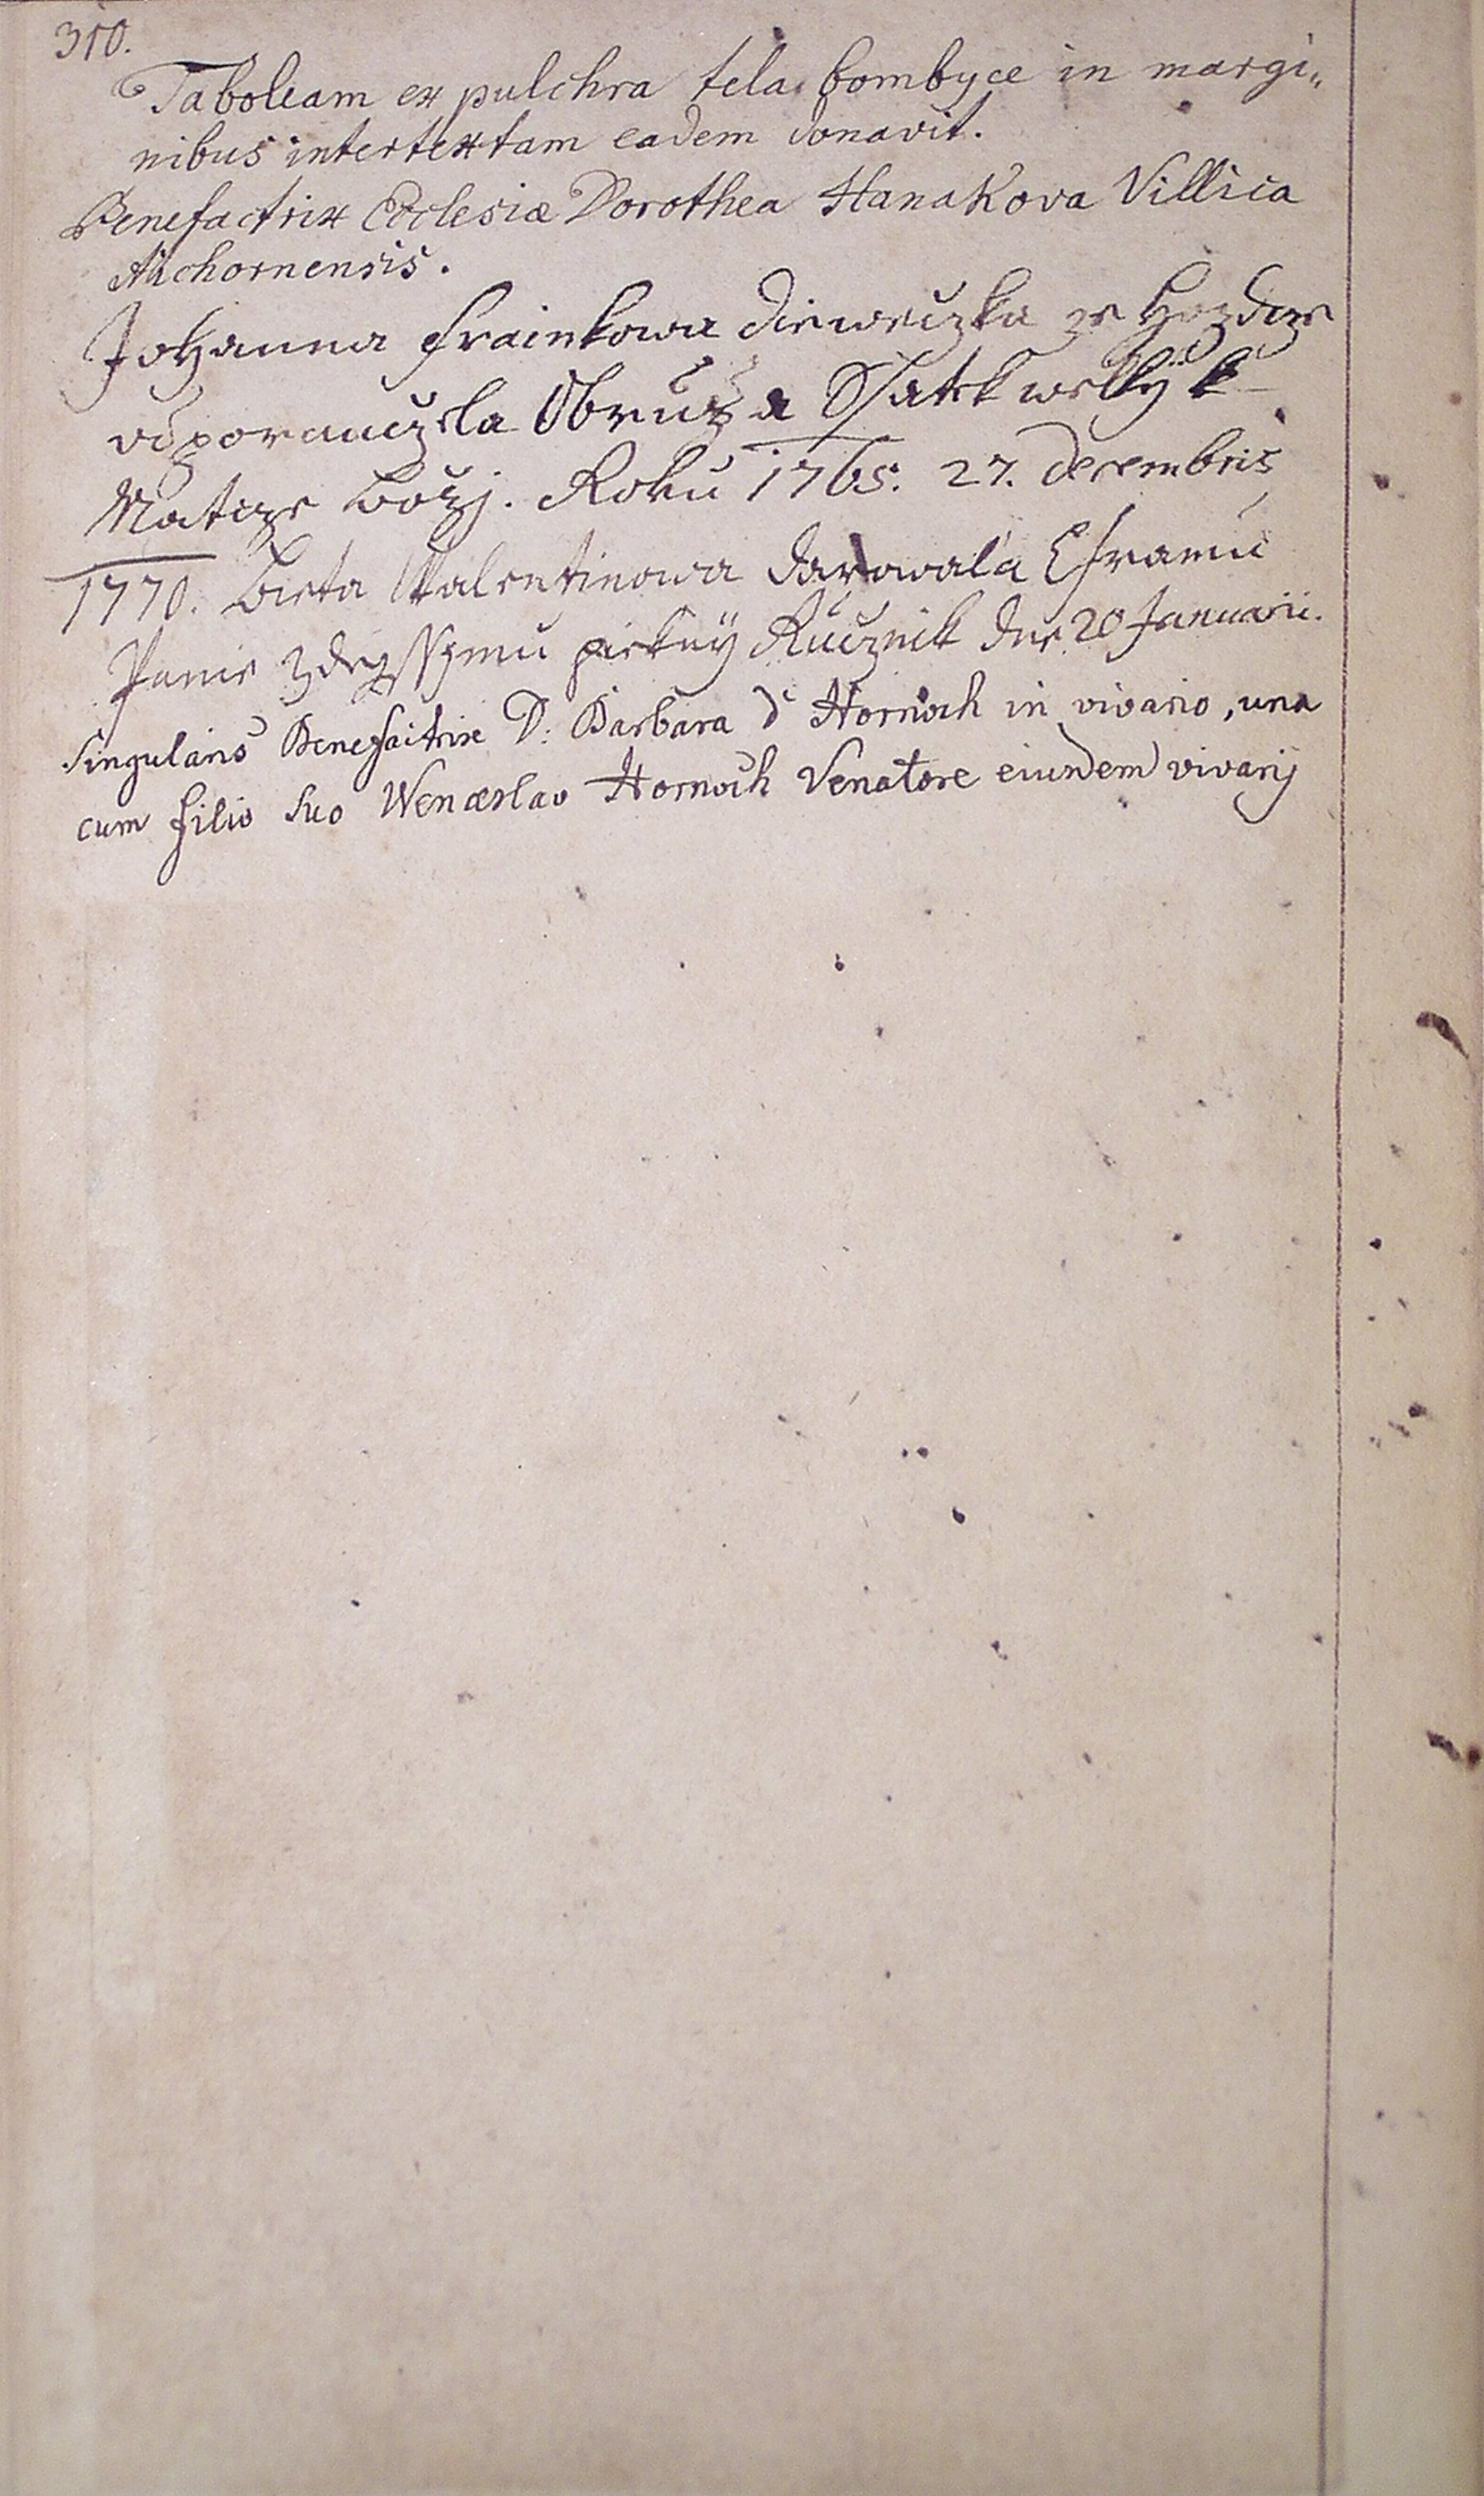 310.
Taboleam ex pulchra tela bombyce in margi„
nibus intertextam eadem donavit.
Benefactrix Ecclesiæ Dorothea Hanakova Villica
Alchornensis.
Johanna Frainkowa dieweczka ze Hozdcze
odporauczela Obrus a Ssatek welky k
Maticze Bozj. Roku 1765. 27. decembris
1770. Bieta Walentinowa darowala Chramu
Panie Zdegssymu piekny Rucznik dne 20 Januarii.
Singularis Benefactrix D: Barbara d Hornoch in vivario, una
cum filio suo Wenceslao Hornoch Venatore eiusdem vivarij